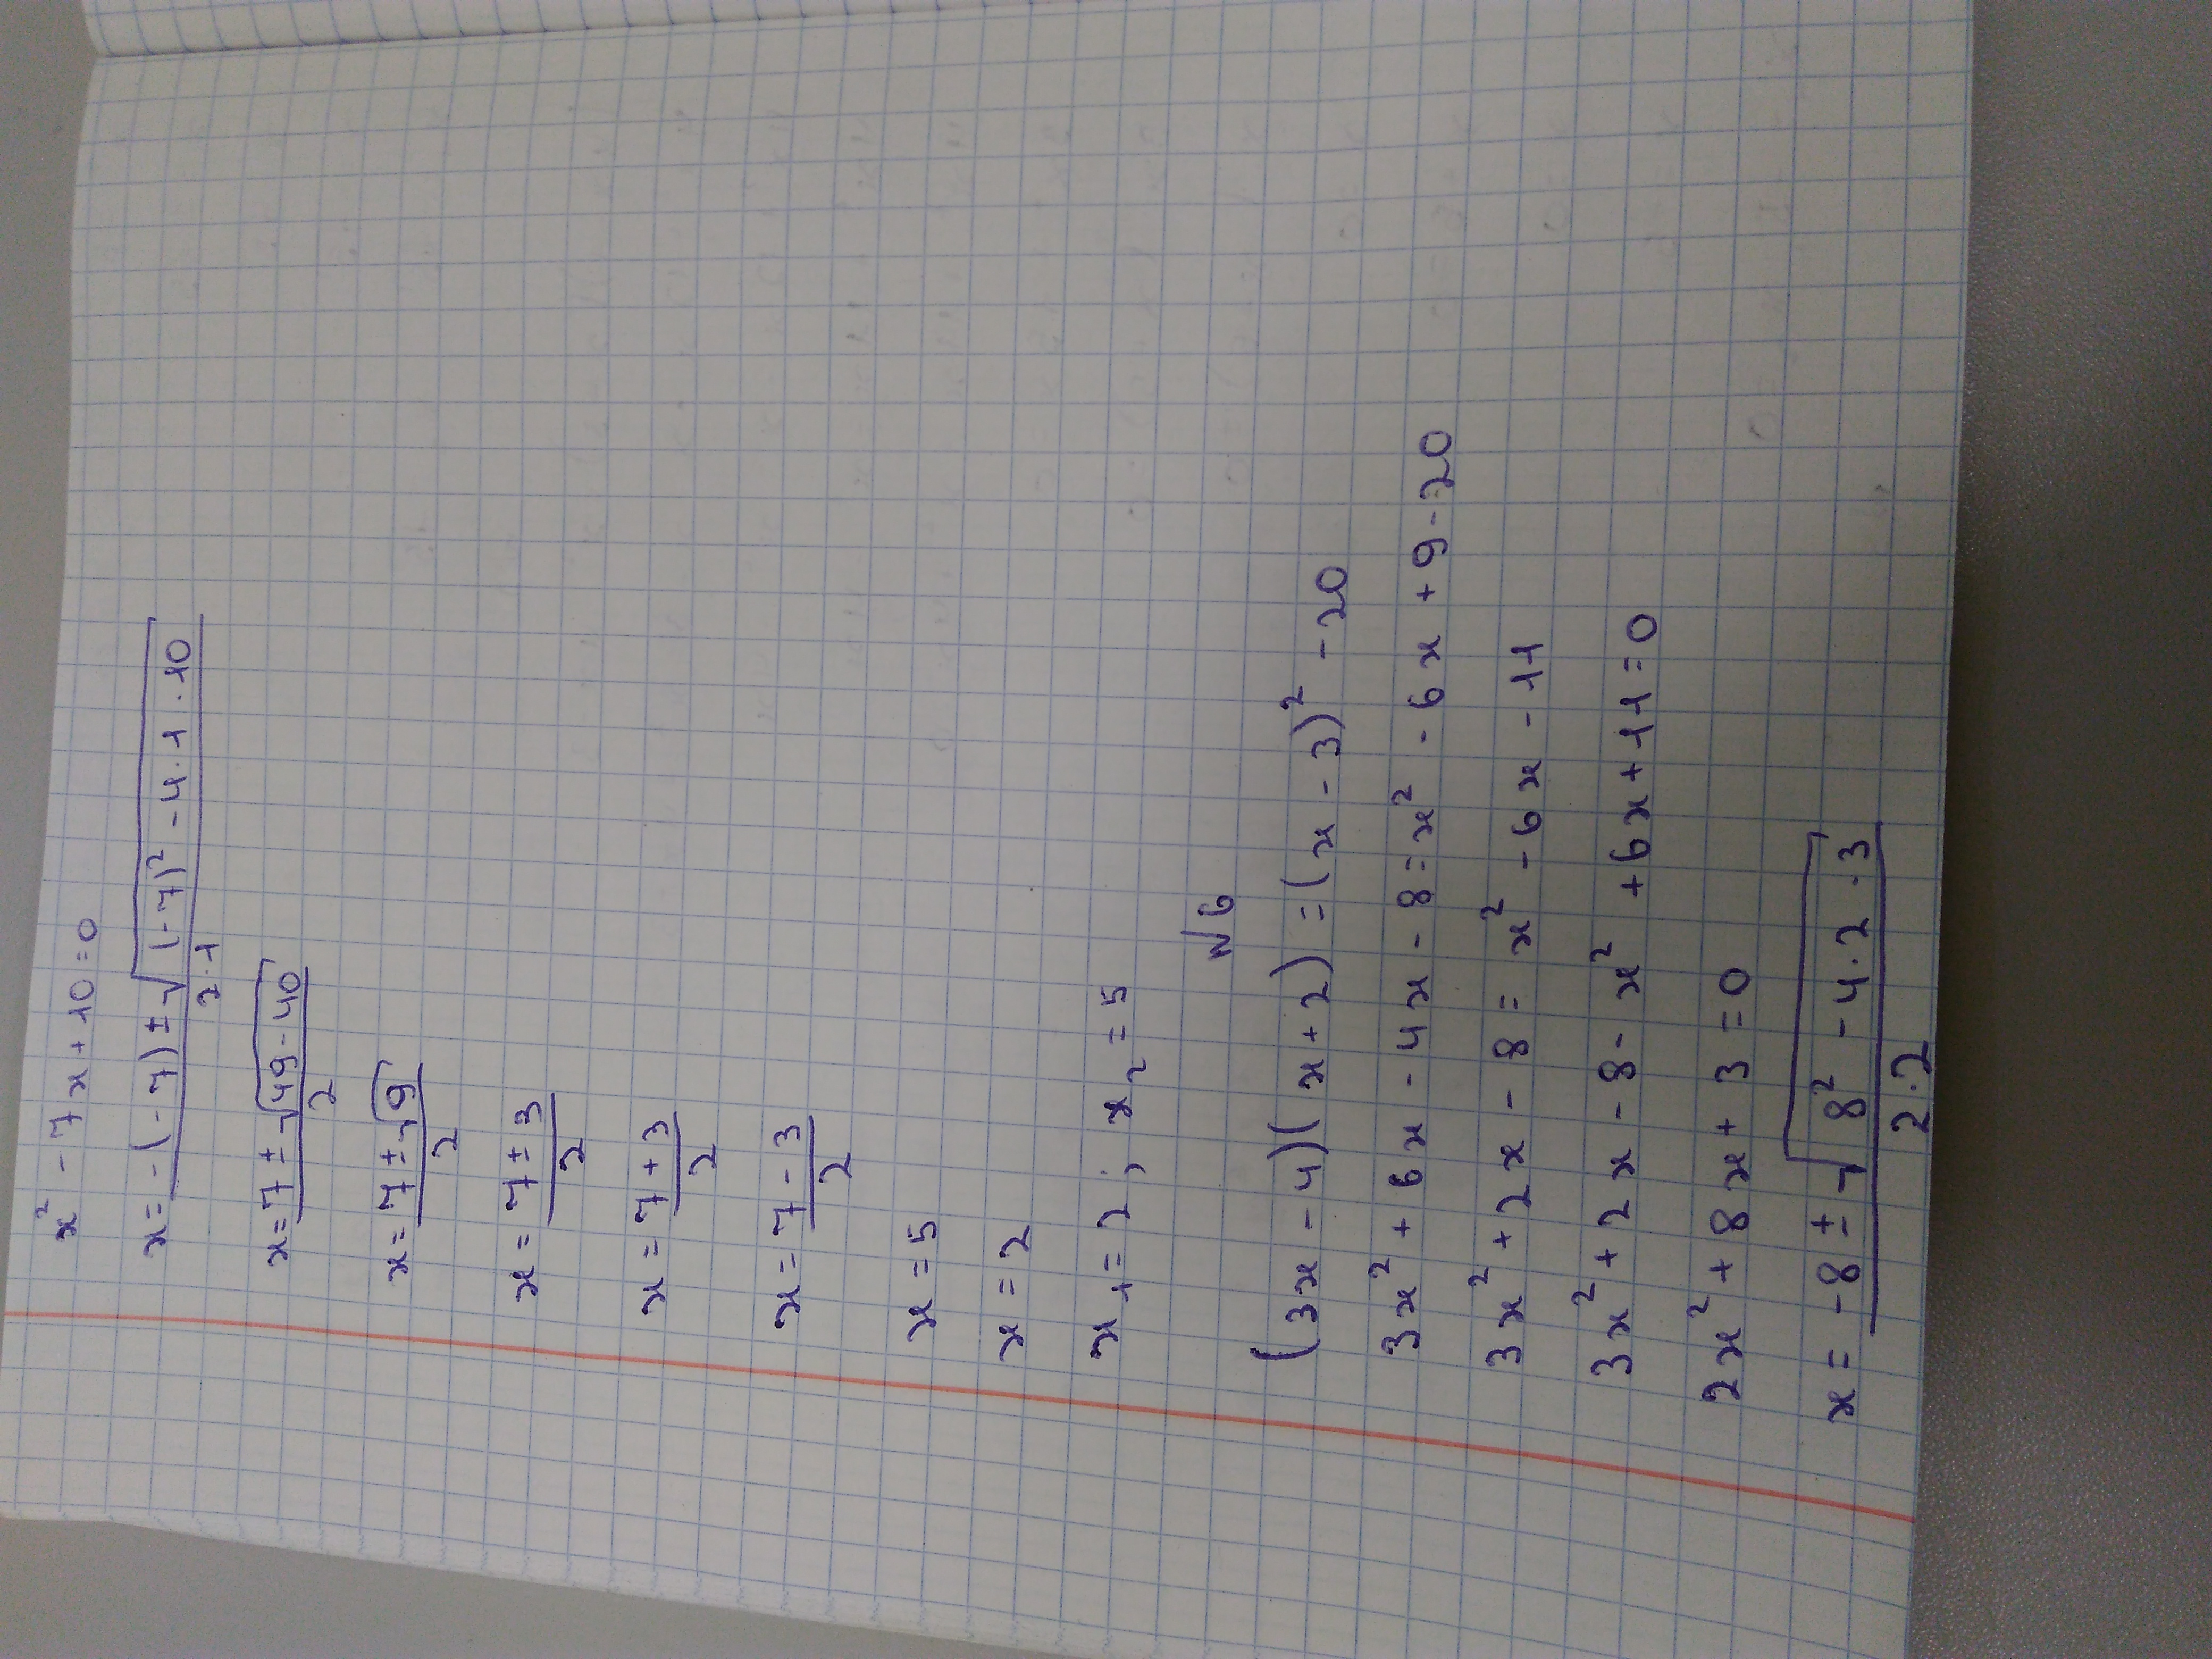 x² - 7x + 10 = 0
x = -(-7) ± √((-7)² - 4 · 1 · 10) / 2 · 1
x = 7 ± √(49 - 40) / 2
x = 7 ± √9 / 2
x = 7 ± 3 / 2
x = 7 + 3 / 2
x = 7 - 3 / 2
x = 5
x = 2
x₁ = 2 ; x₂ = 5
№6
(3x - 4)(x + 2) = (x - 3)² - 20
3x² + 6x - 4x - 8 = x² - 6x + 9 - 20
3x² + 2x - 8 = x² - 6x - 11
3x² + 2x - 8 - x² + 6x + 11 = 0
2x² + 8x + 3 = 0
x = -8 ± √(8² - 4 · 2 · 3) / 2 · 2